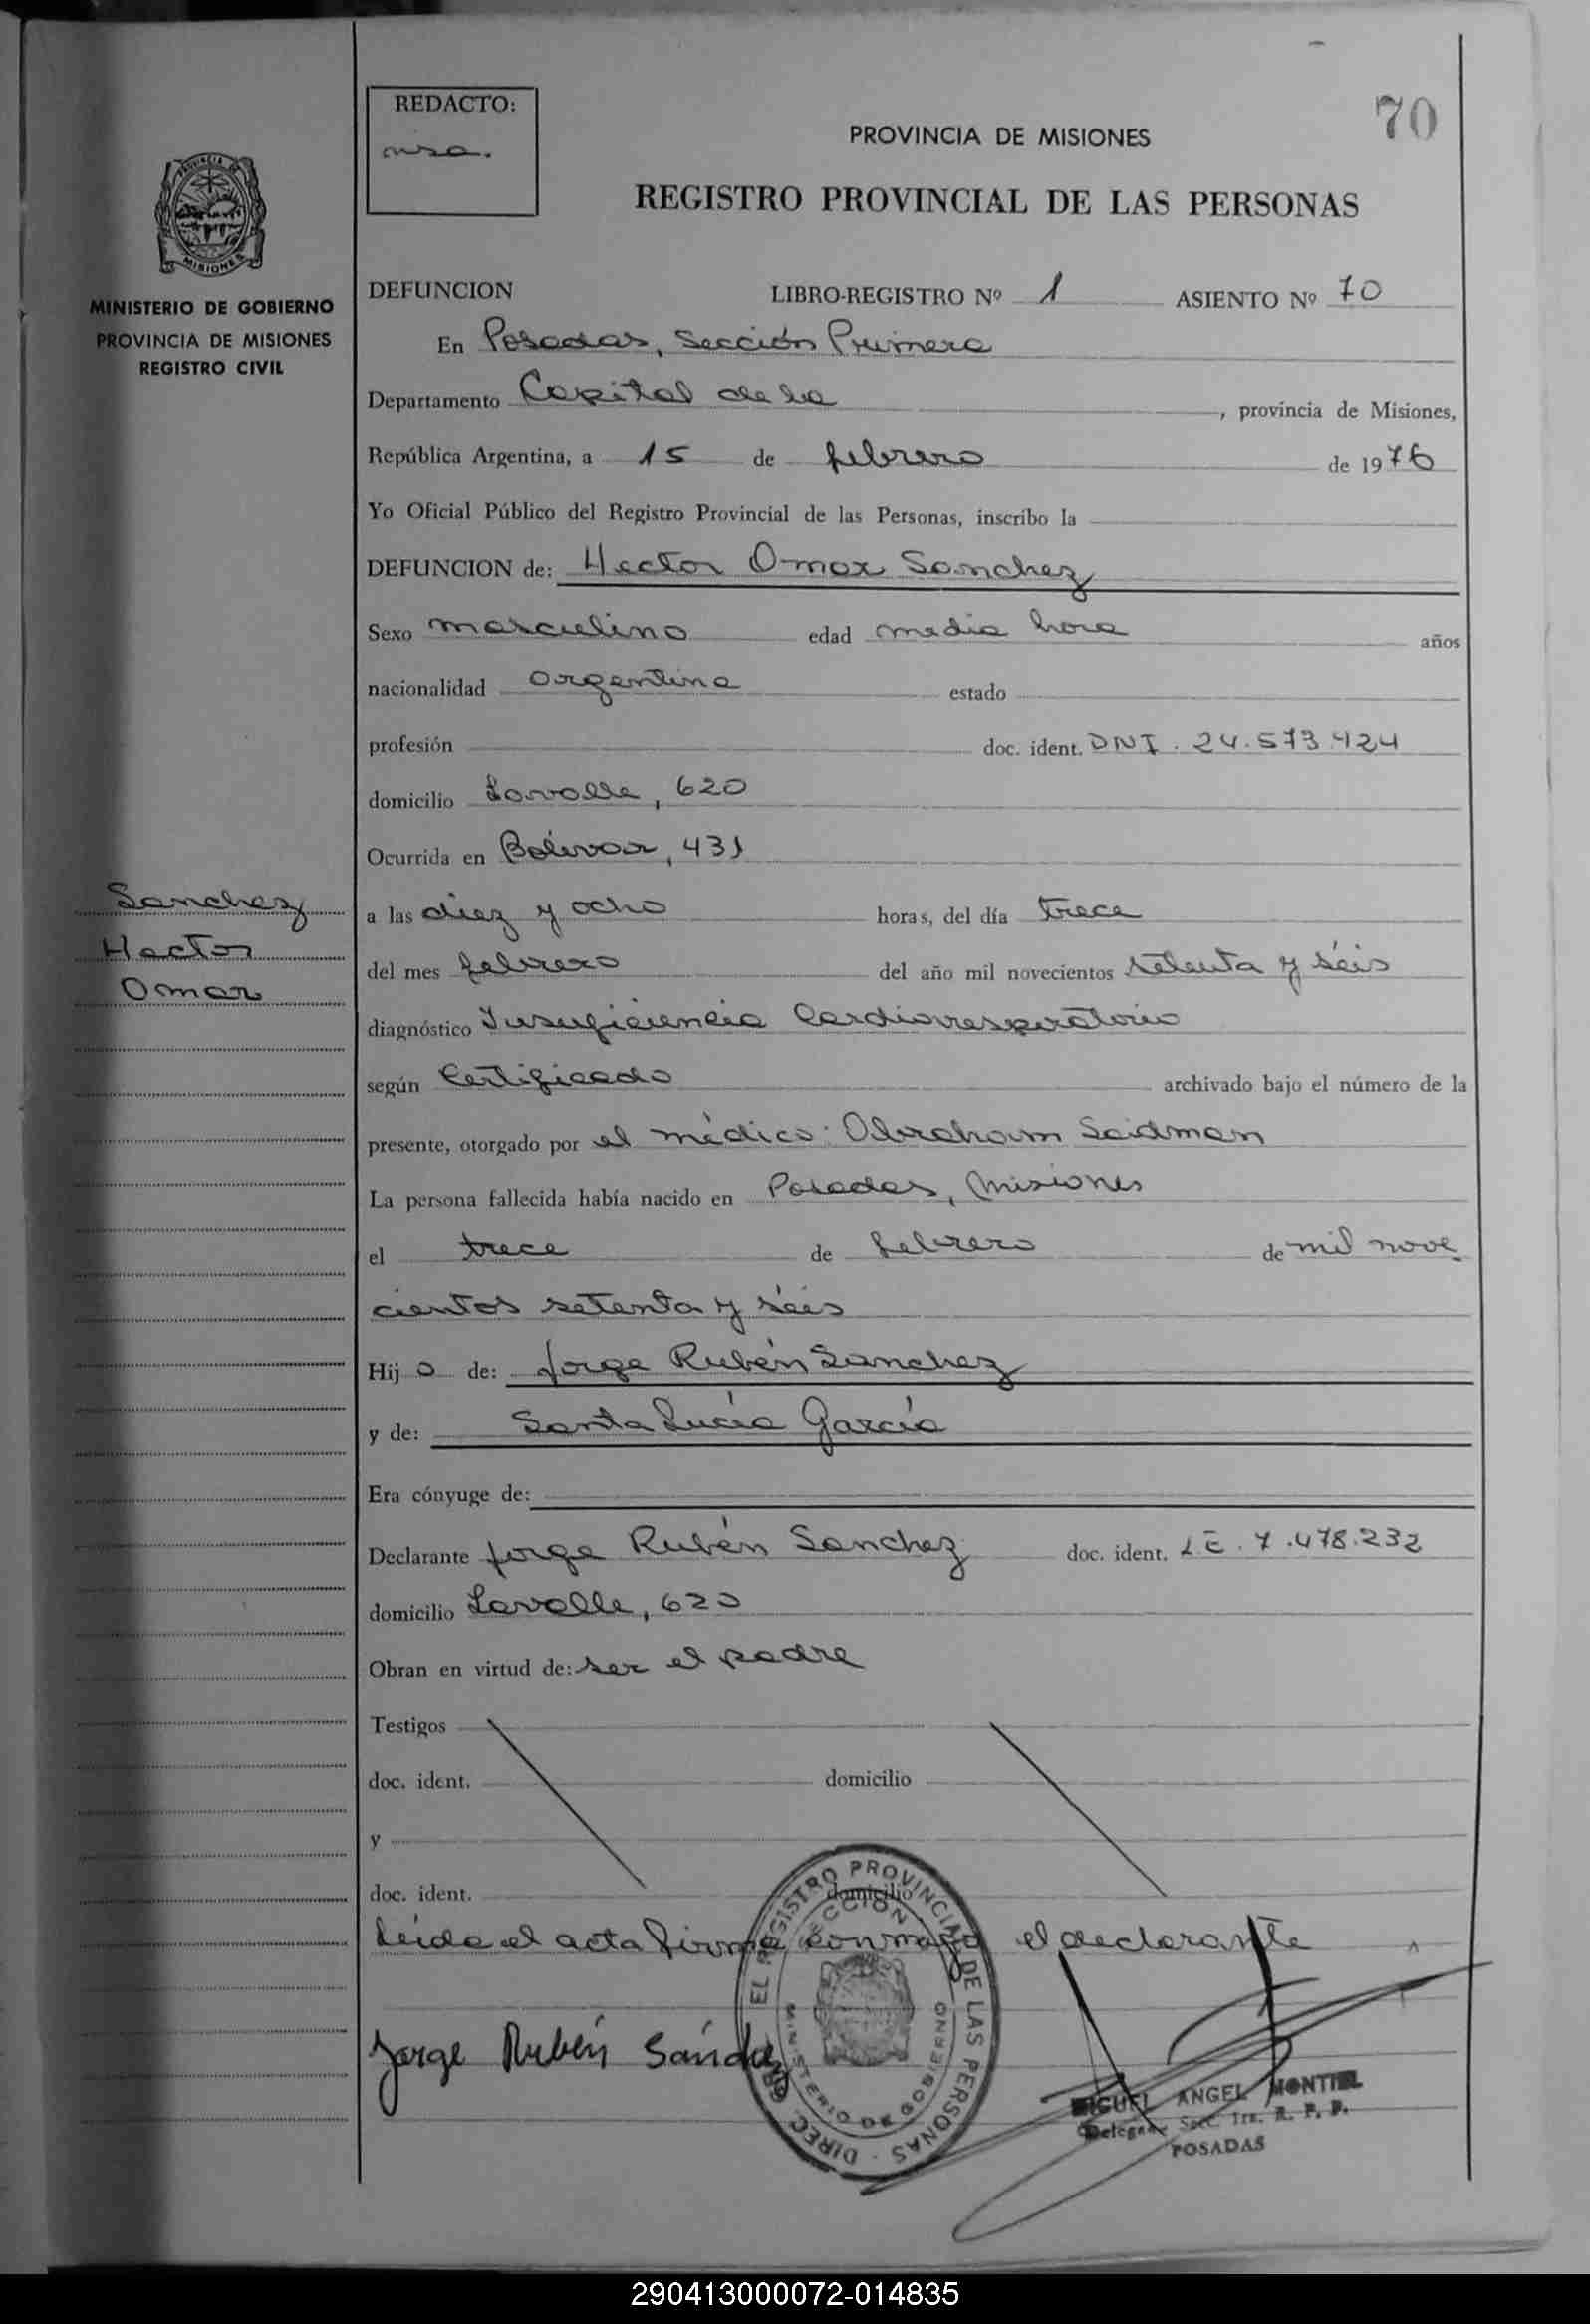 REDACTO:
msa.
70
PROVINCIA DE MISIONES
REGISTRO PROVINCIAL DE LAS PERSONAS
PROVINCIA DE
MISIONES
MINISTERIO DE GOBIERNO
PROVINCIA DE MISIONES
REGISTRO CIVIL
DEFUNCION LIBRO-REGISTRO Nº 1 ASIENTO Nº 70
En Posadas, Sección Primera
Departamento Capital de la , provincia de Misiones,
República Argentina, a 15 de febrero de 1976
Yo Oficial Público del Registro Provincial de las Personas, inscribo la
DEFUNCION de: Hector Omar Sanchez
Sexo masculino edad media hora años
nacionalidad argentina estado
profesión doc. ident. DNI. 24.573.424
domicilio Lavalle, 620
Ocurrida en Bolivar, 431
Sanchez
Hector
Omar
a las diez y ocho horas, del día trece
del mes febrero del año mil novecientos setenta y séis
diagnóstico Insuficiencia Cardiorrespiratorio
según Certificado archivado bajo el número de la
presente, otorgado por el médico: Abraham Saidman
La persona fallecida había nacido en Posadas, Misiones
el trece de febrero de mil nove
cientos setenta y séis
Hij o de: Jorge Rubén Sanchez
y de: Santa Lucía García
Era cónyuge de:
Declarante Jorge Rubén Sanchez doc. ident. LE. 7.478.232
domicilio Lavalle, 620
Obran en virtud de: ser el padre
Testigos
doc. ident. domicilio
y
doc. ident. domicilio
Leida el acta firma conmigo el declarante
Jorge Rubén Sánchez
DIREC. GRAL. DEL REGISTRO PROVINCIAL DE LAS PERSONAS
SECCION
MINISTERIO DE GOBIERNO
MIGUEL ANGEL MONTIEL
Delegado Secc. 1ra. R. P. P.
POSADAS
290413000072-014835